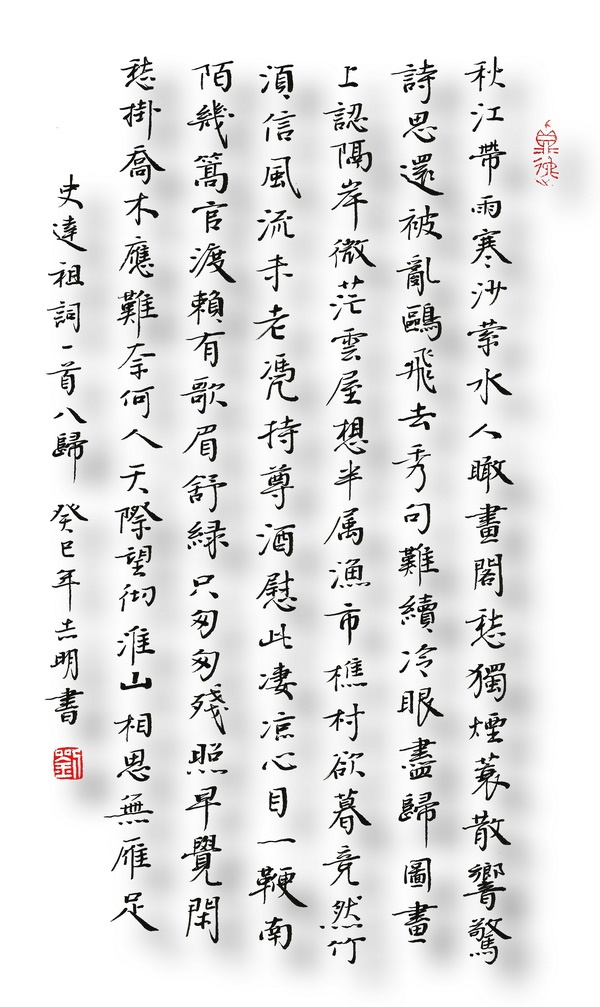 秋江帶雨寒沙縈水人瞰畫閣愁獨煙蓑散響驚
詩思還被亂鷗飛去秀句難續冷眼盡歸圖畫
上認隔岸微茫雲屋想半属漁市樵村欲暮竞然竹
須信風流未老凴持尊酒慰此凄凉心目一鞭南
陌幾篙官渡賴有歌眉舒緑只匆匆殘照早覺閑
愁掛喬木應難奈何人天際望彻淮山相思無雁足
史達祖詞一首八歸 癸巳年吉明書
劉